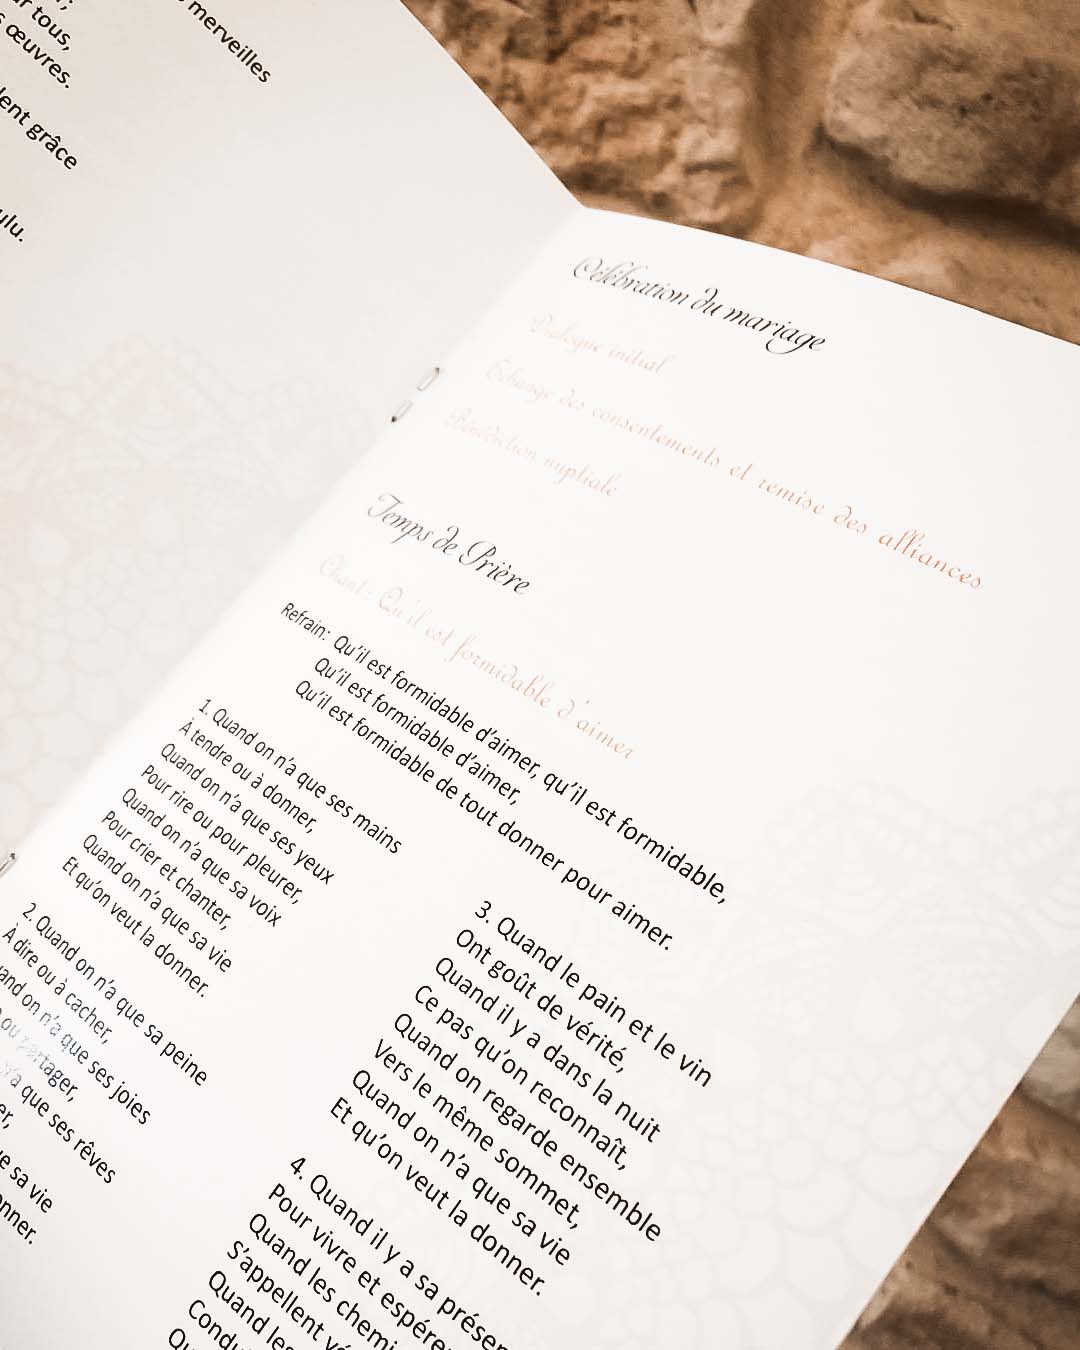 merveilles
tous,
œuvres.
grâce
Célébration du mariage
Dialogue initial
Echange des consentements et remise des alliances
Bénédiction nuptiale
Temps de Prière
Chant : Qu'il est formidable d'aimer
Refrain: Qu'il est formidable d'aimer, qu'il est formidable,
Qu'il est formidable d'aimer,
Qu'il est formidable de tout donner pour aimer.
1. Quand on n'a que ses mains
À tendre ou à donner,
Quand on n'a que ses yeux
Pour rire ou pour pleurer,
Quand on n'a que sa voix
Pour crier et chanter,
Quand on n'a que sa vie
Et qu'on veut la donner.
2. Quand on n'a que sa peine
À dire ou à cacher,
on n'a que ses joies
ou partager,
n'a que ses rêves
sa vie
3. Quand le pain et le vin
Ont goût de vérité,
Quand il y a dans la nuit
Ce pas qu'on reconnaît,
Quand on regarde ensemble
Vers le même sommet,
Quand on n'a que sa vie
Et qu'on veut la donner.
4. Quand il y a sa
Pour vivre et
Quand les
S'appellent
Quand les